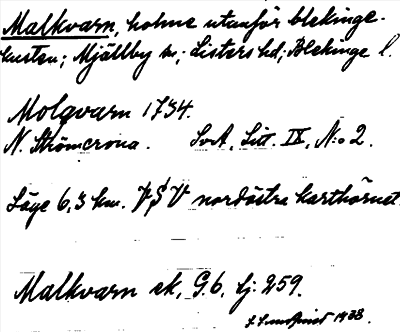 Malkvarn, holme utanför Blekinge-
kusten; Mjällby sn; Listers hd; Blekinge l.
Molqvarn 1734.
N. Strömcrona. SvA, Litt. IX, N:o 2.
Läge 6,3 km. VSV nordöstra karthörnet.
Malkvarn ek, G.6, lj: 259.
1938.